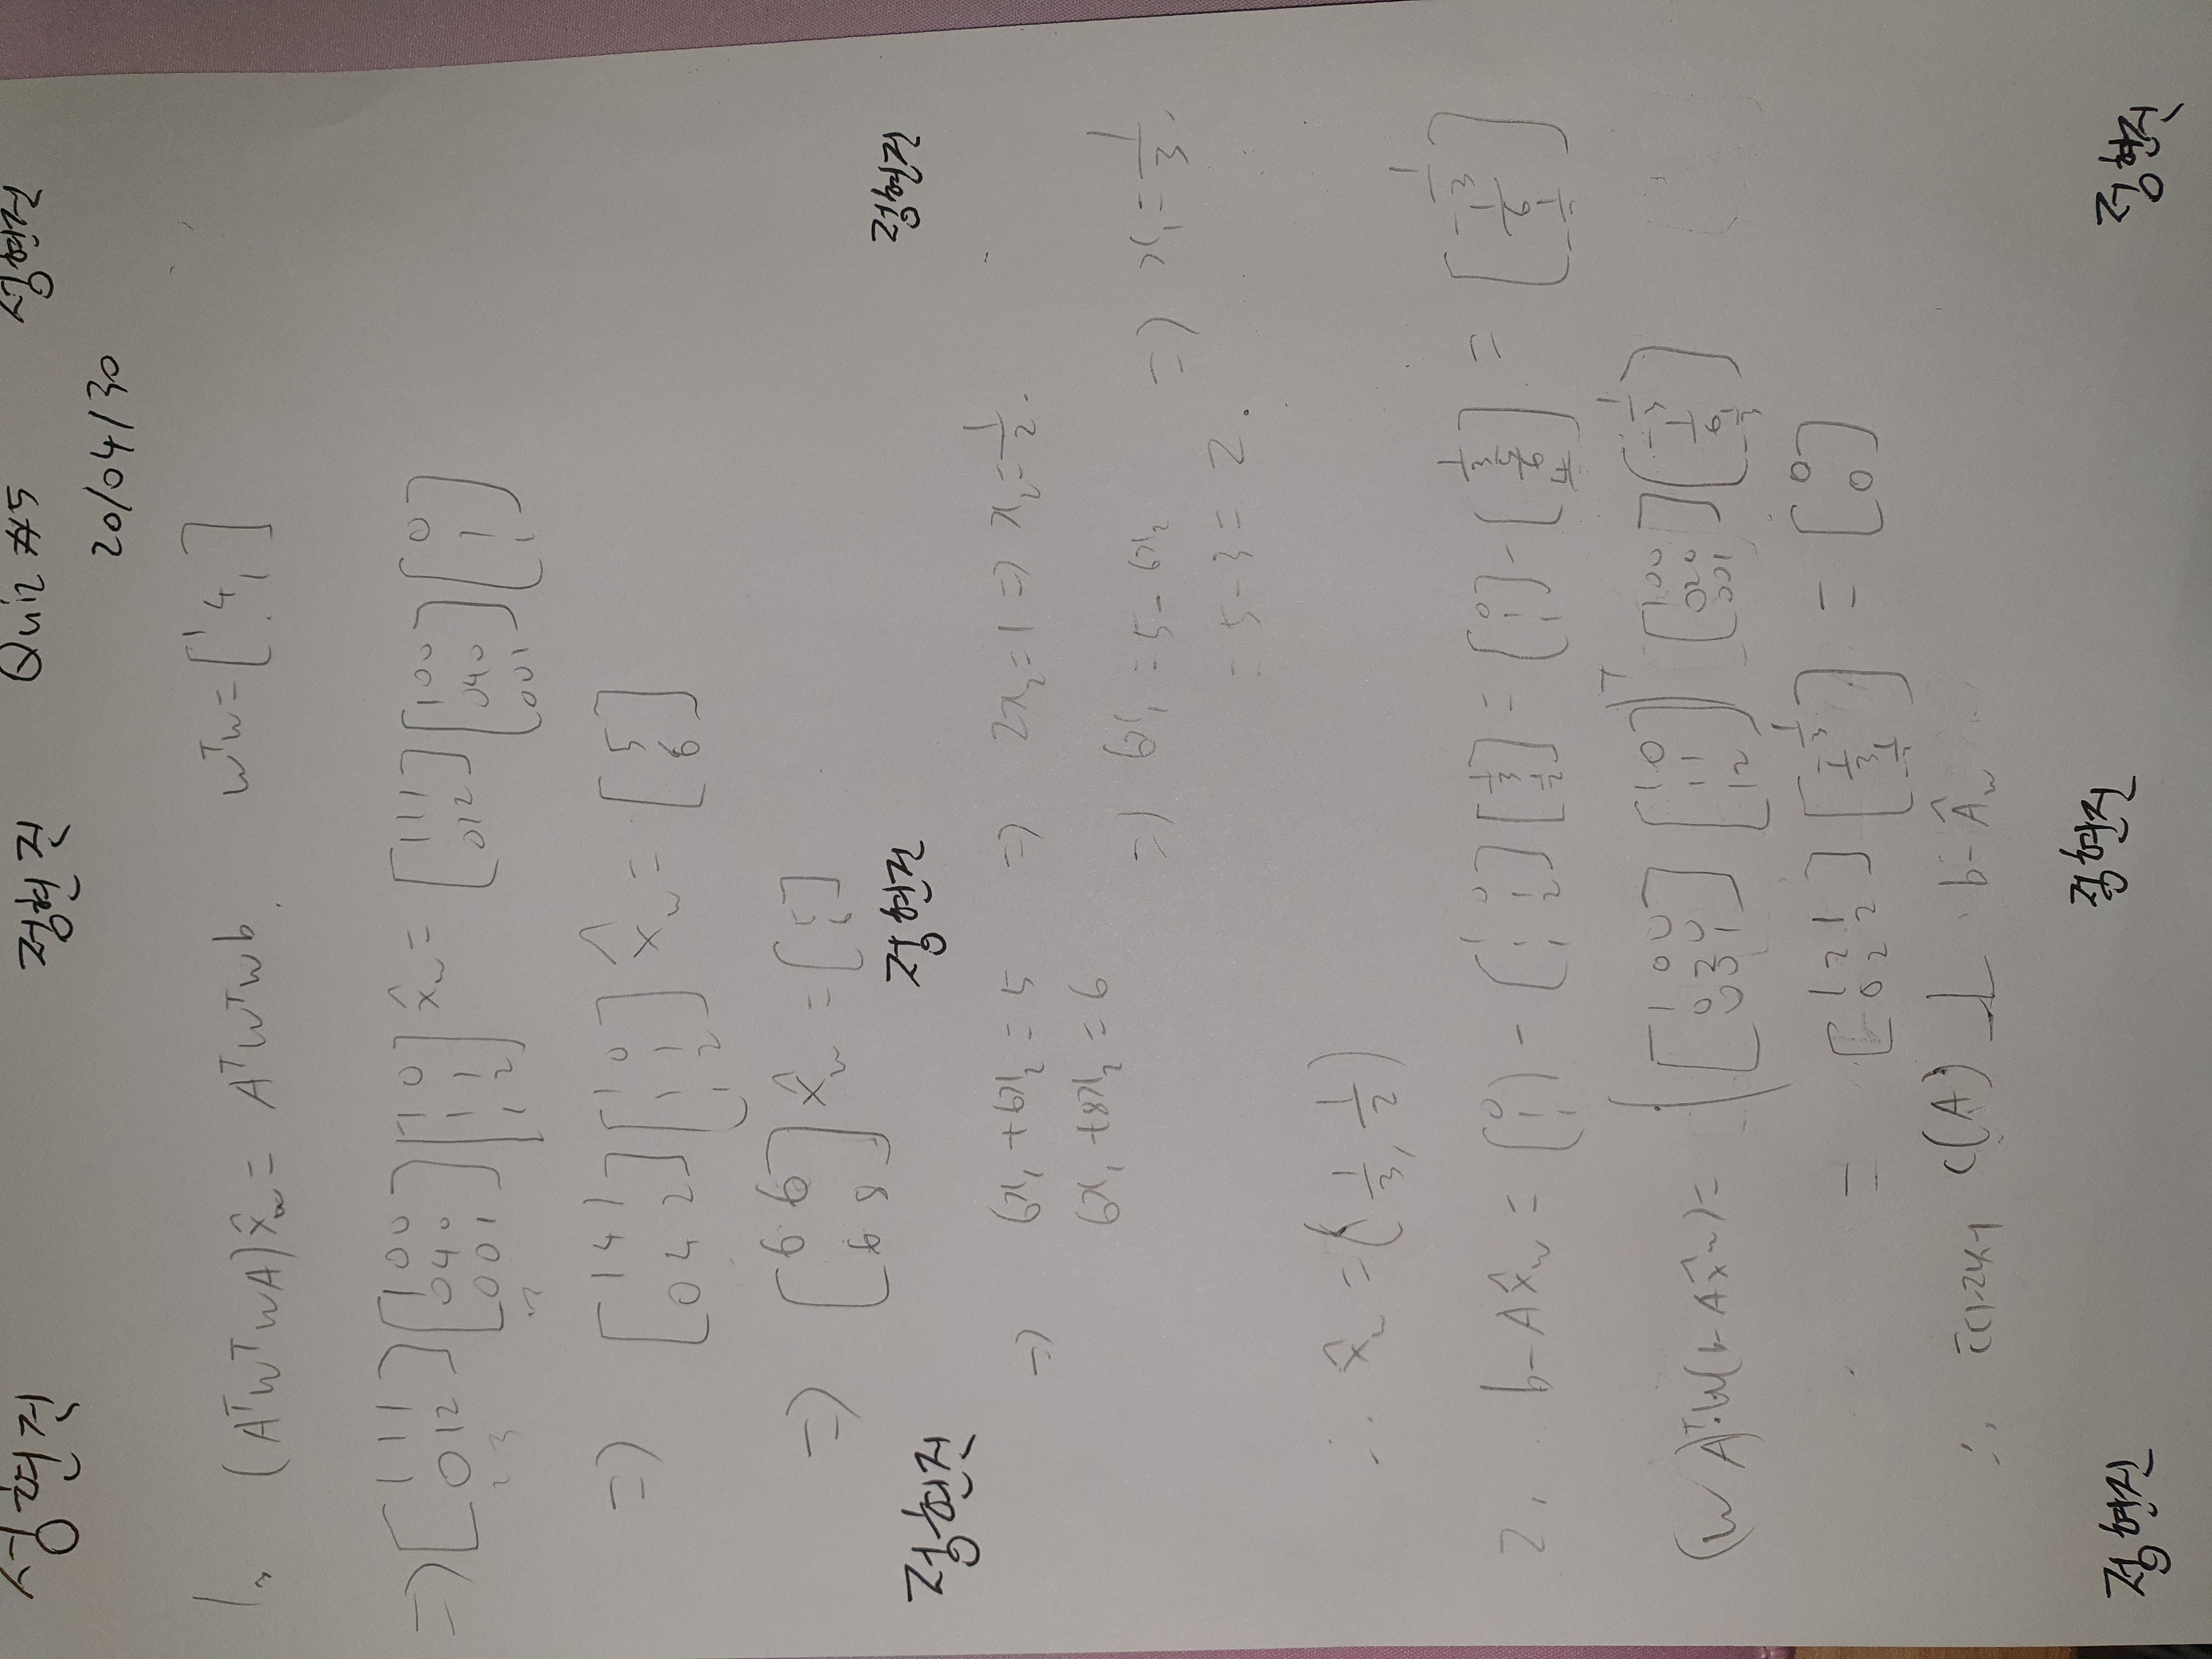 정현진 정현진 Quiz #5 정현진
20/04/30
1. (AᵀWᵀWA)x̂w = AᵀWᵀWb. WᵀW = [1 4 1]
⇒ [1 1 1; 0 1 2] [1 0 0; 0 4 0; 0 0 1] [1 0; 1 1; 1 2] x̂w = [1 1 1; 0 1 2] [1 0 0; 0 4 0; 0 0 1] [0; 1; 1]
⇒ [1 4 1; 0 4 2] [1 0; 1 1; 1 2] x̂w = [5; 6]
⇒ [6 6; 6 8] x̂w = [5; 6]
정현진 정현진 정현진
⇒ 6x₁ + 6x₂ = 5 ⇒ 2x₂ = 1 ⇒ x₂ = 1/2.
6x₁ + 8x₂ = 6
⇒ 6x₁ = 5 - 6x₂ ⇒ x₁ = 1/3.
= 5 - 3 = 2.
∴ x̂w = (1/3, 1/2)
2. b - Ax̂w = [0; 1; 1] - [1 0; 1 1; 1 2] [1/3; 1/2] = [0; 1; 1] - [1/3; 5/6; 4/3] = [-1/3; 1/6; -1/3]
(WA)ᵀ·W(b - Ax̂w) = ([1 0 0; 0 2 0; 0 0 1] [1 0; 1 1; 1 2])ᵀ [1 0 0; 0 2 0; 0 0 1] [-1/3; 1/6; -1/3]
= [1 2 1; 0 2 2] [-1/3; 1/3; -1/3] = [0; 0]
∴ C(A) ⊥ b - Âw
정현진 정현진 정현진